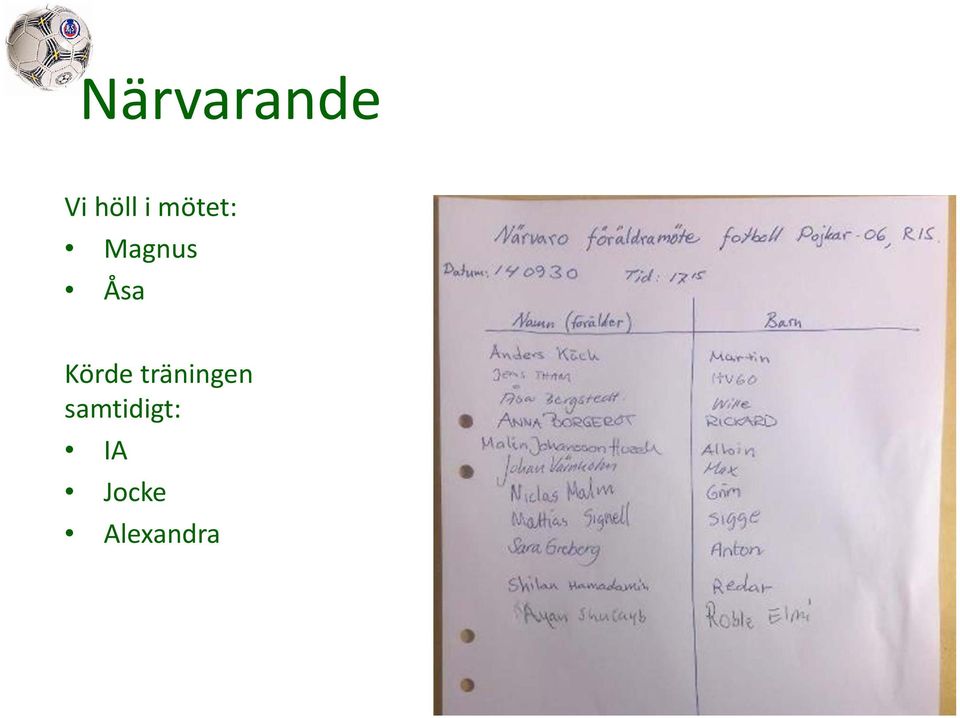 Närvarande
Vi höll i mötet:
• Magnus
• Åsa
Körde träningen
samtidigt:
• IA
• Jocke
• Alexandra
Närvaro föräldramöte fotboll Pojkar-06, RIS.
Datum: 140930 Tid: 17 15
Namn (förälder) Barn
Anders Käch Martin
Jens THAM HUGO
Åsa Bergstedt Wille
ANNA BORGEROT RICKARD
Malin Johansson Albin
Johan Värnholm Max
Niclas Malm Grim
Mattias Signell Sigge
Sara Greberg Anton
Shilan Hamadamin Redar
Ayan Shucayb Roble Elmi